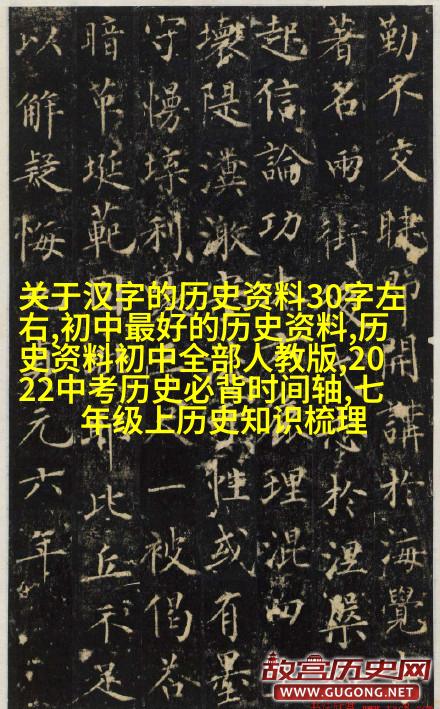 关于汉字的历史资料30字左
右,初中最好的历史资料,历
史资料初中全部人教版,20
22中考历史必背时间轴,七
年级上历史知识梳理
勤不交睫即開講於海覺
著名兩街於涅槃
起信論功理混四
壞隄潰漱性或有墨
守慢利一被偈若
暗埏範比丘示足
以解疑悔元六年
故宫历史网
WWW.GUGONG.NET